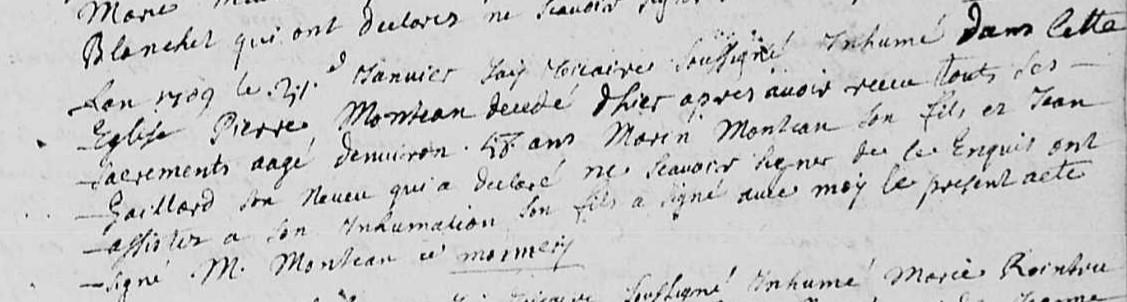 Marie
Blanchet qui ont declarés ne scavoir signer
Lan 1709 le Janvier Jay vicaire soussigné Inhumé dans Cette
Eglise Pierre Monteau decedé d'hier apres avoir receu touts ses
sacrements aagé denuiron 58 ans Marin Monteau son fils et Jean
Gaillard son Neveu qui a declaré ne scavoir signer de ce Enquis ont
assistez a son Inhumation son fils a signé avec moy le present acte
signé M. Monteau et
soussigné Inhumé Marie